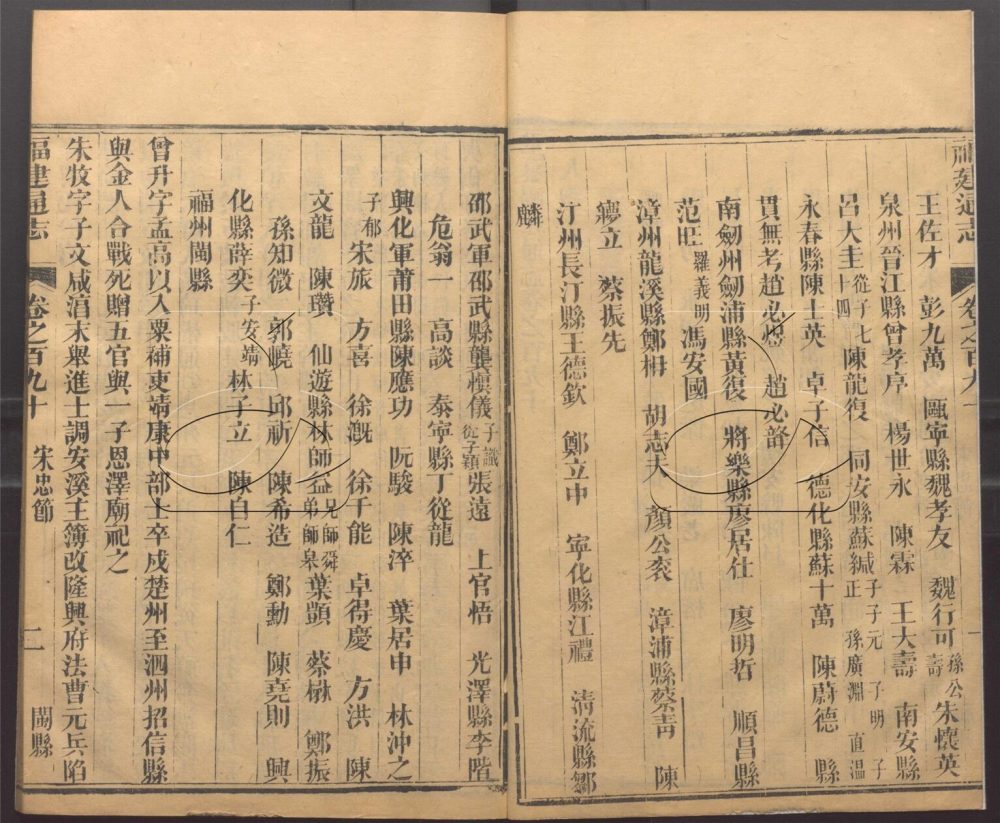 福建通志 卷之百九十
王佐才 彭九萬 甌寧縣魏孝友 魏行可孫公壽朱懷英
泉州晉江縣曾孝序 楊世永 陳霖 王大壽 南安縣
呂大圭從子七十四陳龍復 同安縣蘇緘子子元 子明 子正 孫廣淵 直溫
永春縣陳士英 卓子信 德化縣蘇十萬 陳蔚德 縣
貫無考趙必𤇍 趙必諮
南劒州劒浦縣黃復 將樂縣廖居仕 廖明哲 順昌縣
范旺羅義明馮安國
漳州龍溪縣鄭栂 胡志夫 顏公衮 漳浦縣蔡青 陳
繆立 蔡振先
汀州長汀縣王德欽 鄭立中 寧化縣江禮 清流縣鄒
麟
邵武軍邵武縣龔懷儀子識 從子穎張遠 上官悟 光澤縣李階
危翁一 高談 泰寧縣丁從龍
興化軍莆田縣陳應功 阮駿 陳淬 葉居申 林沖之
子郁宋旅 方喜 徐漑 徐千能 卓得慶 方洪 陳
文龍 陳瓚 仙遊縣林師益兄師舜 弟師皋葉顗 蔡楙 鄭振
孫知微 郭巇 邱祈 陳希造 鄭勳 陳堯則 興
化縣薛奕子安靖林子立 陳自仁
福州閩縣
曾升字孟高以入粟補吏靖康中部士卒戍楚州至泗州招信縣
與金人合戰死贈五官與一子恩澤廟祀之
朱牧字子文咸淳末舉進士調安溪主簿改隆興府法曹元兵陷
福建通志 卷之百九十 宋忠節 二 閩縣